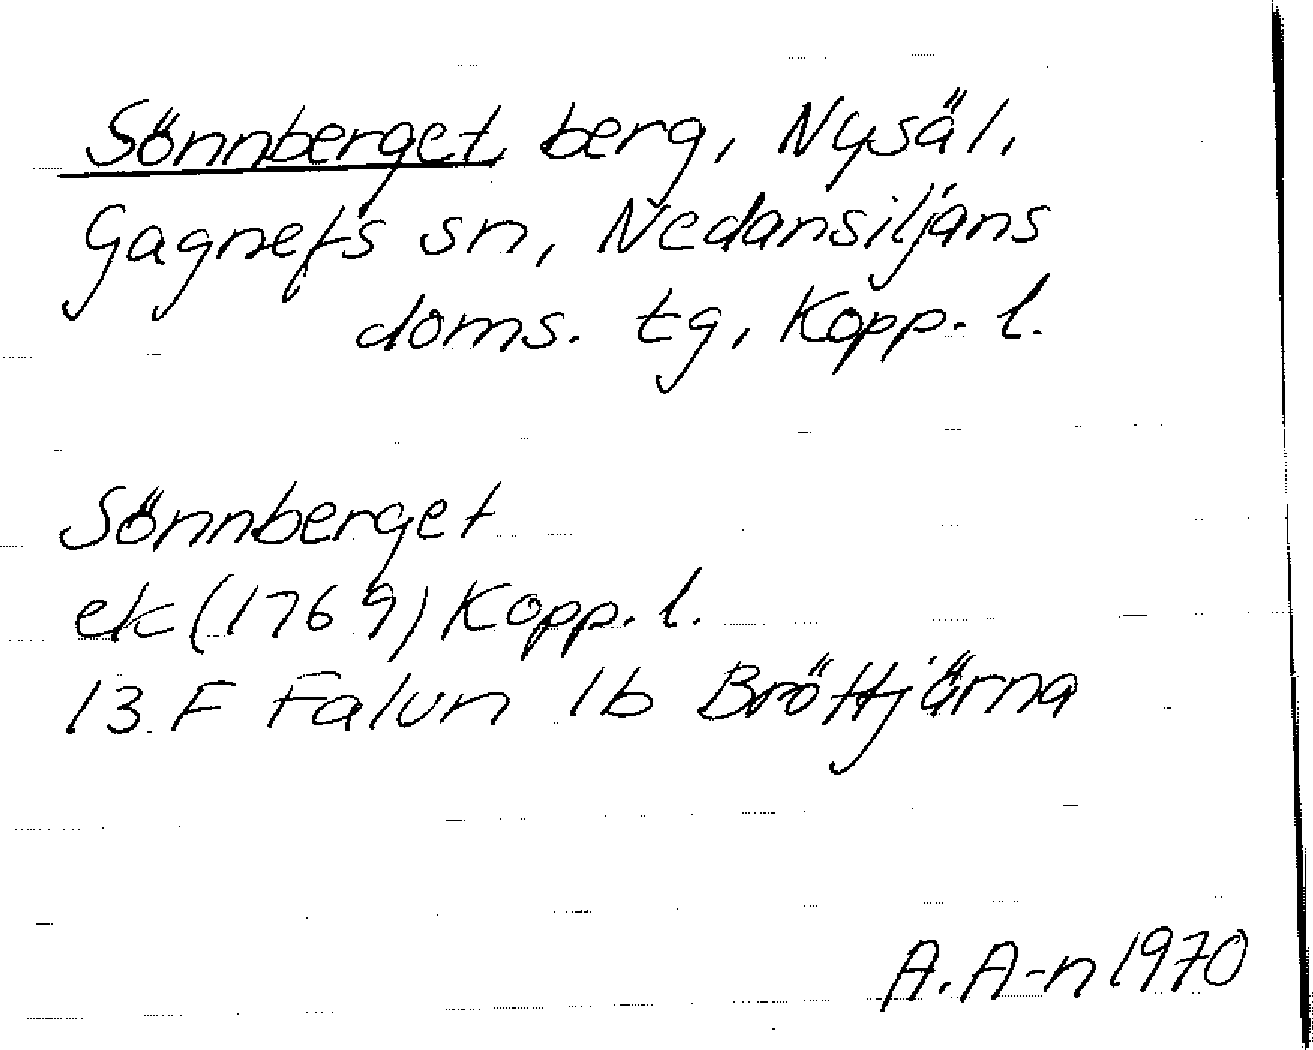 Sönnberget berg, Nysäl,
Gagnefs sn, Nedansiljans
doms. tg, Kopp. l.
Sönnberget
ek (1769) Kopp. l.
13 F Falun 1b Bröttjärna
A. A-n 1970